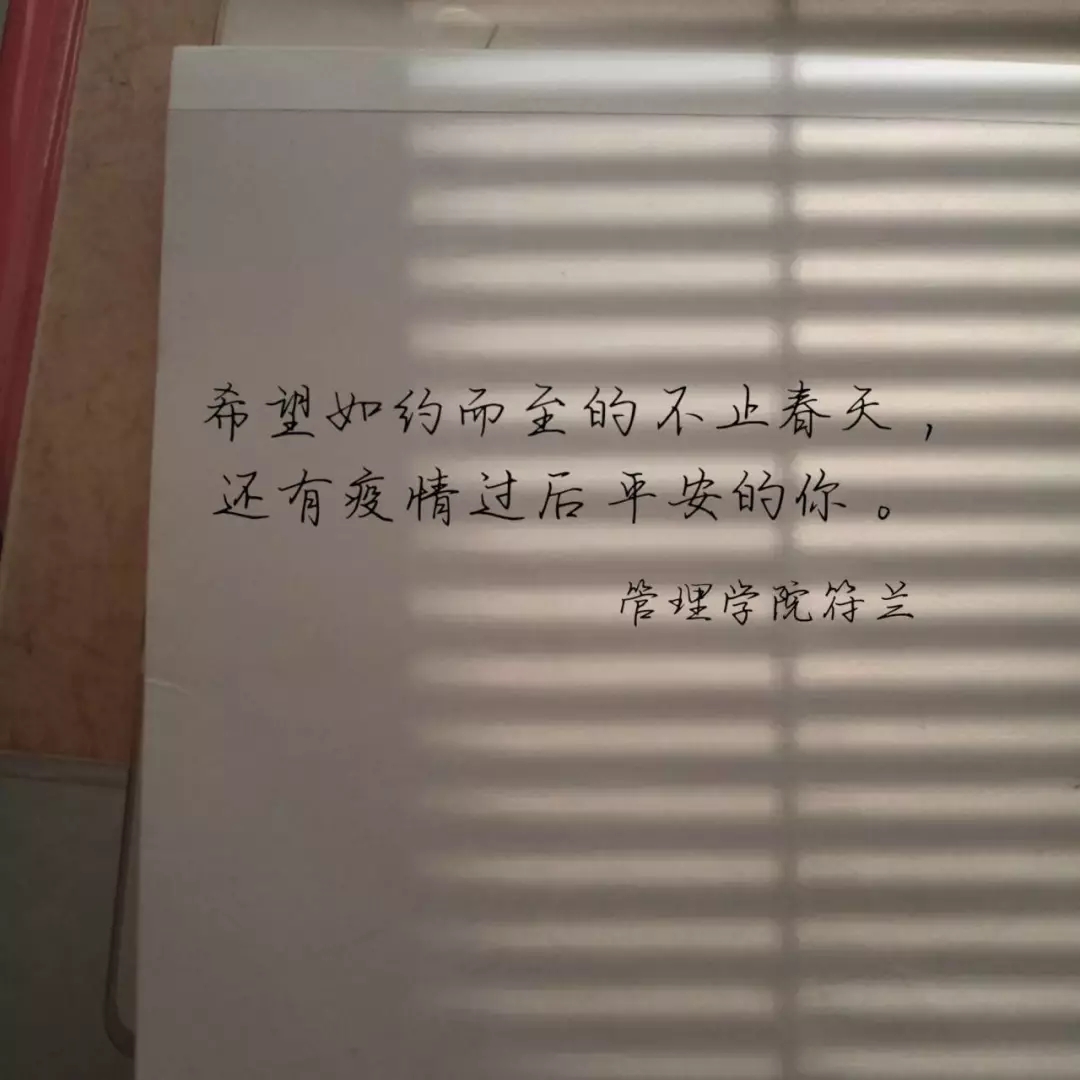 希望如约而至的不止春天，
还有疫情过后平安的你。
管理学院符兰